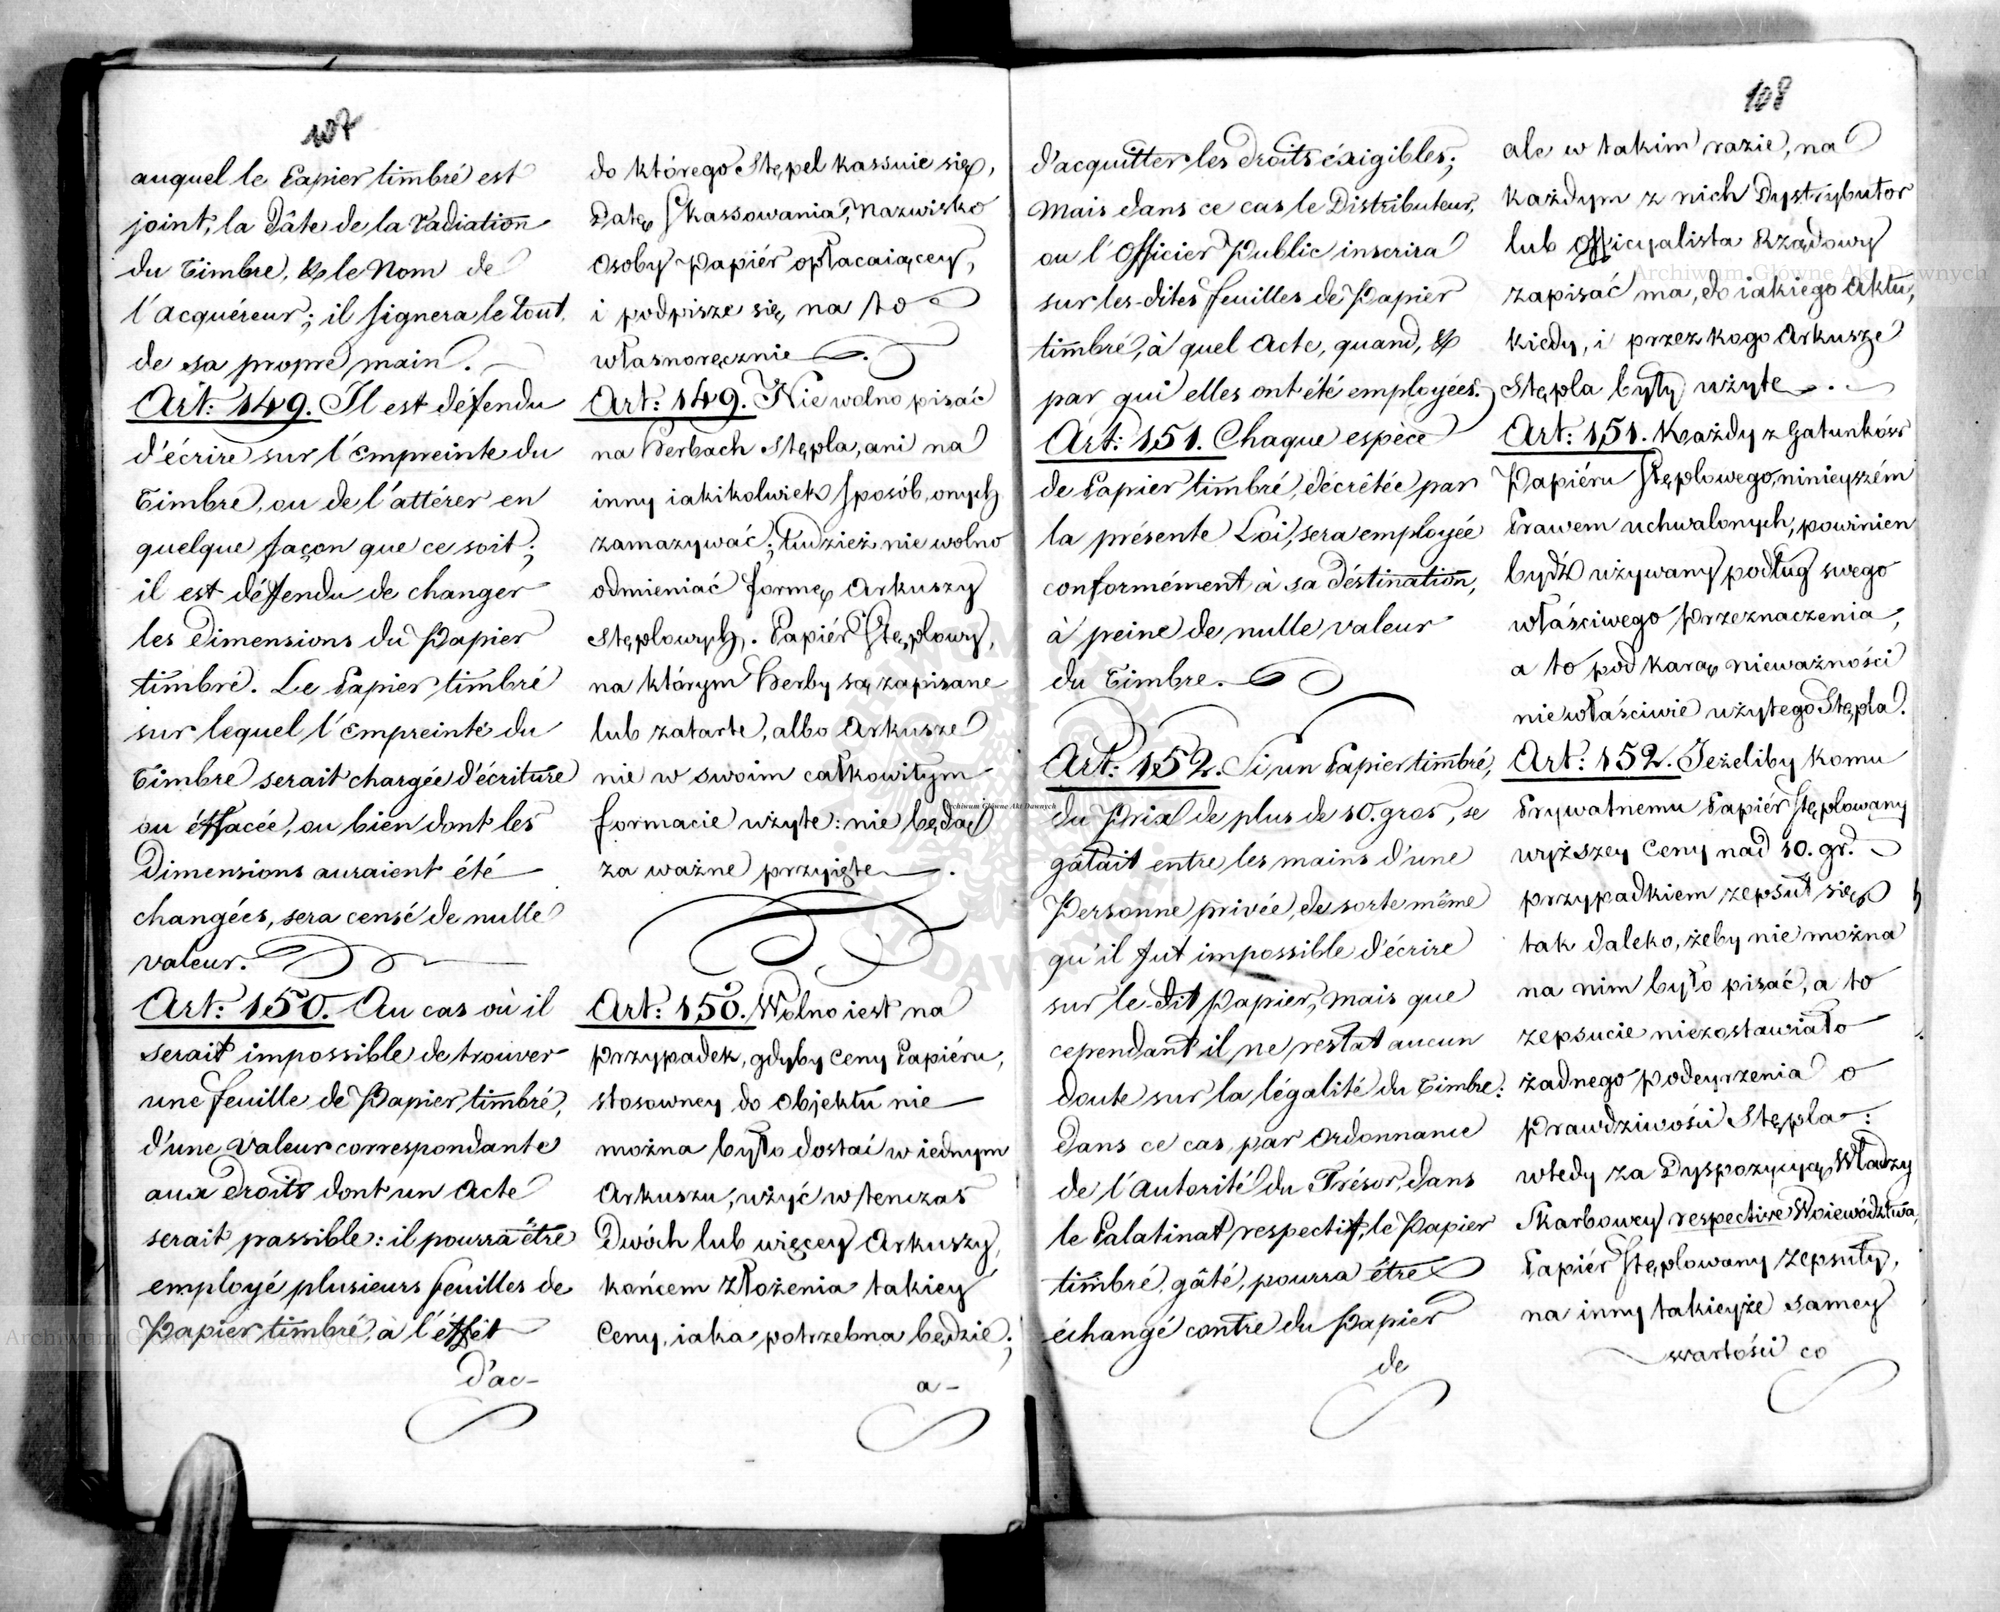 107
auquel le Papier timbré est
joint, la Dâte de la Radiation
du Timbre, & le Nom de
l'Acquéreur; il signera le tout
de sa propre main.
Art: 149. Il est défendu
d'écrire sur l'Empreinte du
Timbre, ou de l'attérer en
quelque façon que ce soit;
il est déffendu de changer
les Dimensions du Papier
timbré. Le Papier timbré
sur lequel l'Empreinte du
Timbre serait chargée d'écriture
ou éffacée, ou bien dont les
Dimensions auraient été
changées, sera censé de nulle
valeur.
Art: 150. Au cas où il
serait impossible de trouver
une feuille de Papier timbré,
d'une valeur correspondante
aux Droits dont un Acte
serait passible: il pourra être
employé plusieurs feuilles de
Papier timbré, à l'éffét
d'ac-
do którego Stępel kassuie się,
Datę skassowania, Nazwisko
Osoby Papiér opłacaiącey,
i podpisze się na to
własnoręcznie.
Art: 149. Nie wolno pisać
na Herbach Stępla, ani na
inny iakikolwiek sposób, onych
zamazywać; tudzież nie wolno
odmieniać formę Arkuszy
Stęplowych. Papiér Stęplowy,
na którym Herby są zapisane
lub zatarte, albo Arkusze
nie w swoim całkowitym
formacie użyte: nie będą
za ważne przyięte.
Art: 150. Wolno iest na
przypadek, gdyby Ceny Papiéru,
stosowney do Objektu nie
można było dostać w iednym
Arkuszu, użyć w tenczas
Dwóch lub więcey Arkuszy,
końcem złożenia takiey
Ceny, iaka potrzebna będzie;
a-
108
d'acquitter les droits éxigibles;
Mais dans ce cas le Distributeur,
ou l'Officier Public inscrira
sur les-dites feuilles de Papier
timbré, à quel Acte, quand, &
par qui elles ont été employées.
Art: 151. Chaque espèce
de Papier timbré, décrêtée par
la présente Loi, sera employée
conformément à sa déstination,
à peine de nulle valeur
du Timbre.
Art: 152. Si un Papier timbré,
du Prix de plus de 10. gros, se
gâtait entre les mains d'une
Personne privée, de sorte même
qu'il fut impossible d'écrire
sur le-dit Papier, mais que
cependant il ne restat aucun
doute sur la légalité du Timbre:
Dans ce cas, par Ordonnance
de l'Autorité du Trésor, dans
le Palatinat respectif, le Papier
timbré, gâté, pourra être
échangé contre du Papier
de
ale w takim razie, na
każdym z nich Dystrybutor
lub Officyalista Rządowy
zapisać ma, do iakiego Aktu,
kiedy, i przez kogo Arkusze
Stępla były użyte.
Art: 151. Każdy z Gatunków
Papiéru Stęplowego, ninieyszém
Prawem uchwalonych, powinien
bydź używany podług swego
właściwego Przeznaczenia,
a to pod karą nieważności
niewłaściwie użytego Stępla.
Art: 152. Jeżeliby komu
Prywatnemu Papiér Stęplowany
wyższey Ceny nad 10. gr.
przypadkiem zepsuł się
tak daleko, żeby nie można
na nim było pisać, a to
zepsucie niezostawiało
żadnego podeyrzenia o
prawdziwości Stępla:
wtedy za Dyspozycyą Władzy
Skarbowey respective Woiewództwa,
Papiér Stęplowany zepsuty,
na inny takieyże samey
wartości co
Archiwum Główne Akt Dawnych